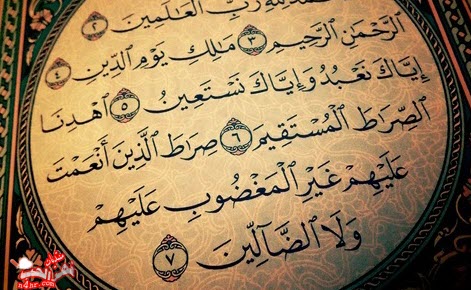 لله رب العالمين ٢
الرَّحْمَٰنِ الرَّحِيمِ ٣ مَالِكِ يَوْمِ الدِّينِ ٤
إِيَّاكَ نَعْبُدُ وَإِيَّاكَ نَسْتَعِينُ ٥ ٱهْدِنَا
ٱلصِّرَاطَ ٱلْمُسْتَقِيمَ ٦ صِرَاطَ ٱلَّذِينَ أَنْعَمْتَ
عَلَيْهِمْ غَيْرِ ٱلْمَغْضُوبِ عَلَيْهِمْ
وَلَا ٱلضَّآلِّينَ ٧
n4hr.com